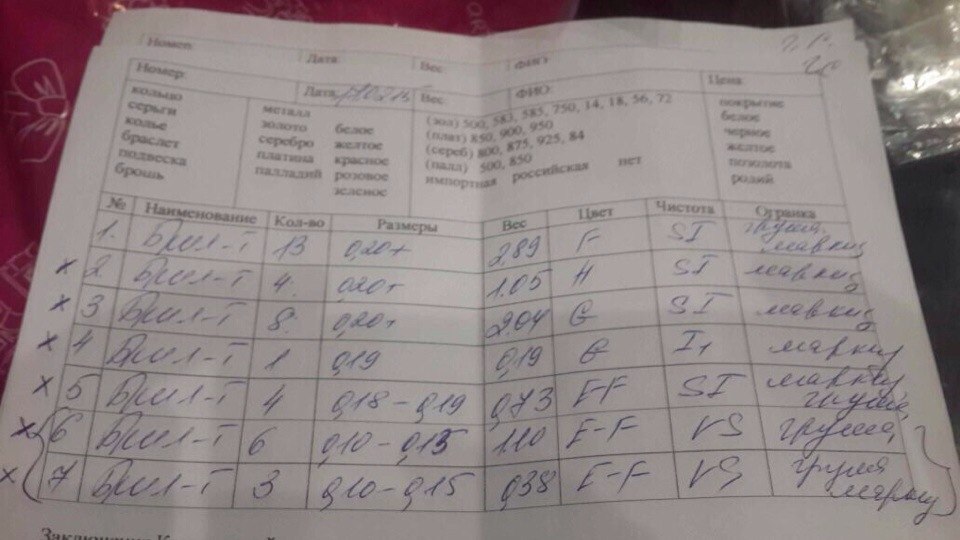 Номер: Дата Вес ФИО
Номер: Дата Вес ФИО: Цена
кольцо серьги колье браслет подвеска брошь
металл
золото белое
серебро желтое
платина красное
палладий розовое
зеленое
(зол) 500, 583, 585, 750, 14, 18, 56, 72
(плат) 850, 900, 950
(сереб) 800, 875, 925, 84
(палл) 500, 850
импортная российская нет
покрытие
белое
черное
желтое
позолота
родий
№ Наименование Кол-во Размеры Вес Цвет Чистота Огранка
1. Брил-т 13 0,20+ 2.89 F SI груша, маркиз
x 2 Брил-т 4. 0,20+ 1.05 H SI маркиз
x 3 Брил-т 8 0,20+ 2,04 G SI маркиз
x 4 Брил-т 1 0,19 0,19 G I1 маркиз
x 5 Брил-т 4 0,18-0,19 0,73 SI маркиз груша
x 6 Брил-т 6 0,10-0,15 1.10 E-F VS груша,
x 7 Брил-т 3 0,10-0,15 0,38 E-F VS груша маркиз